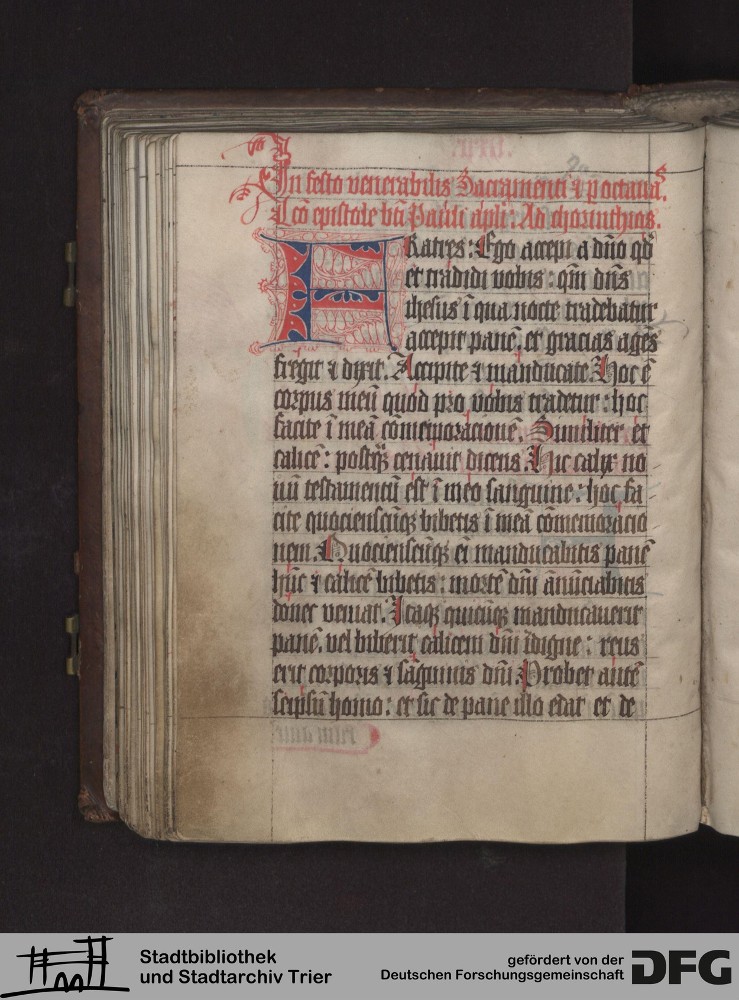 In festo venerabilis Sacramenti ⁊ p octauā.
Lcō epistole bti Pauli apli: Ad chorinthios.
FRatres: Ego accepi a dn̄o qd̄
et tradidi vobis: qm̄ dn̄s
ihesus ī qua nocte tradebatur
accepit panē, et gracias agēs
fregit ⁊ dixit. Accipite ⁊ manducate. Hoc ē
corpus meū quod pro vobis tradetur: hoc
facite ī meā cōmemoracionē. Similiter et
calicē: postqᷓ cenauit dicens. Hic calix no
uū testamentū est ī meo sanguine: hoc fa
cite quociensciūqꝫ bibetis ī meā cōmemoracio
nem. Quociensciūqꝫ eī manducabitis panē
hūc ⁊ calicē bibetis: mortē dn̄i ānūciabitis
donec veniat. Itaqꝫ quicūqꝫ manducauerit
panē. vel biberit calicem dn̄i īdigne: reus
erit corporis ⁊ sāguinis dn̄i. Probet autē
seipsū homo: et sic de pane illo edat et de
Stadtbibliothek
und Stadtarchiv Trier
gefördert von der
Deutschen Forschungsgemeinschaft
DFG